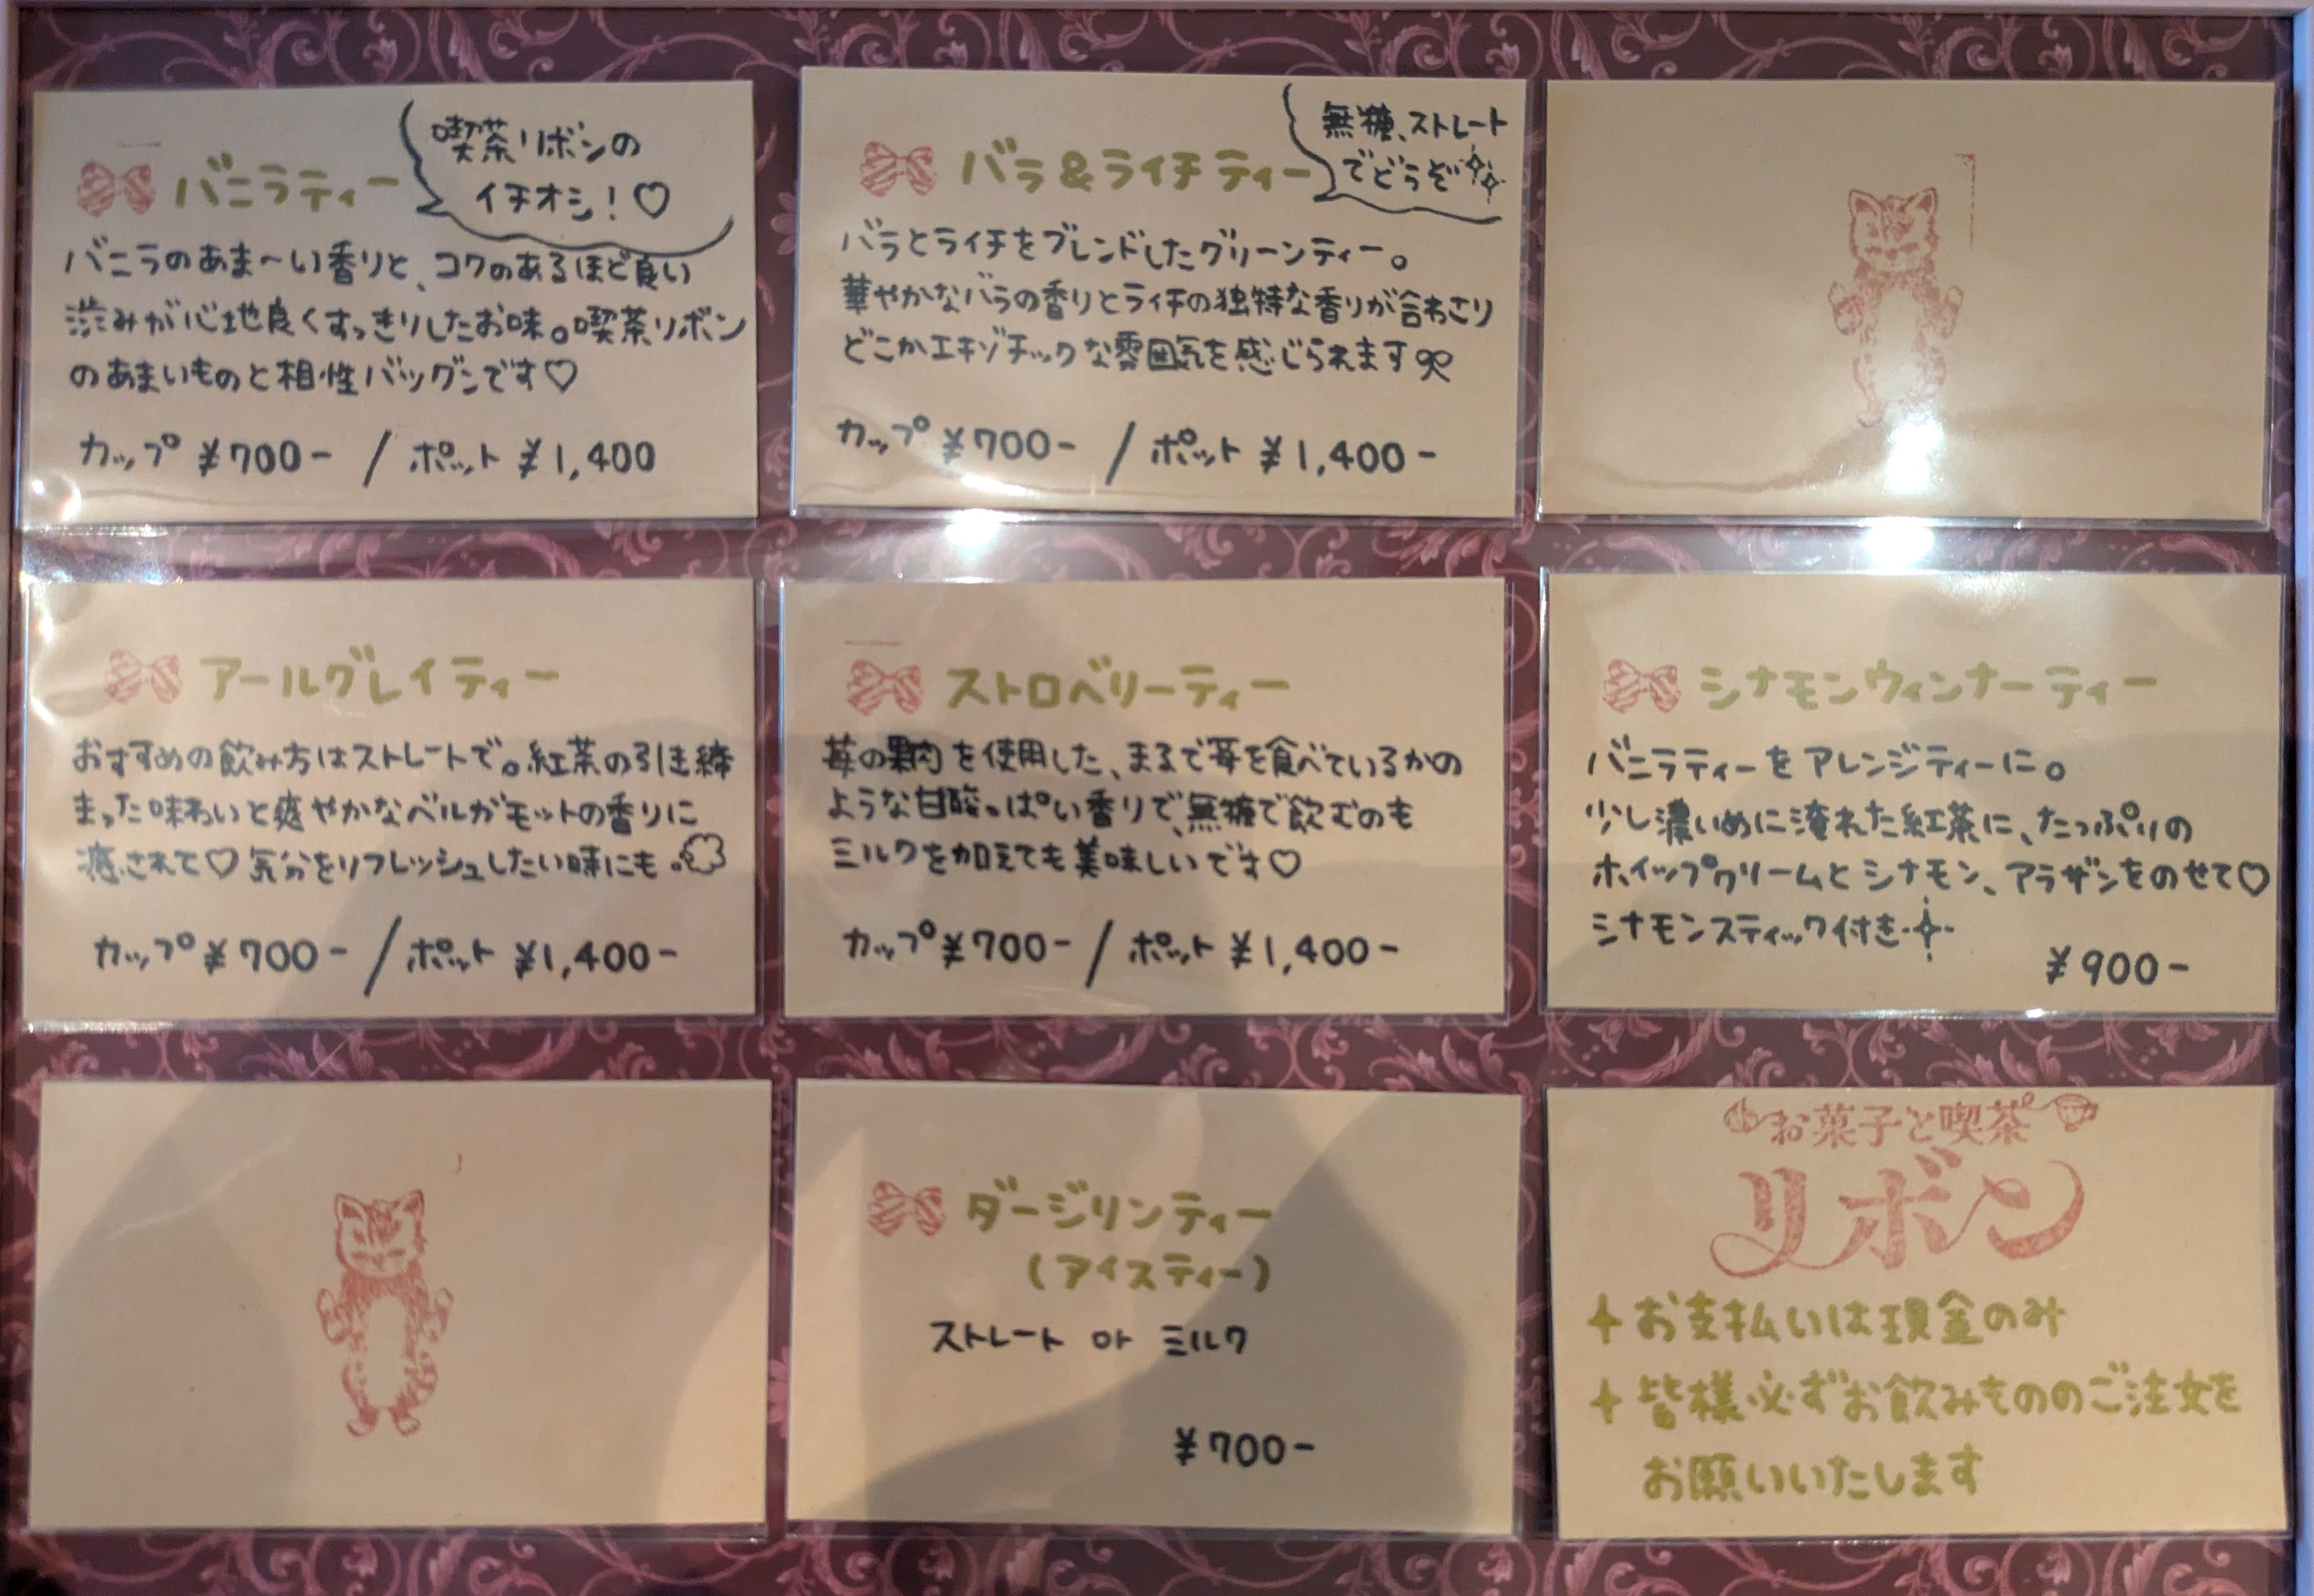 バニラティー
喫茶リボンの
イチオシ！♡
バニラのあま〜い香りと、コクのあるほど良い
渋みが心地良くすっきりしたお味。喫茶リボン
のあまいものと相性バツグンです♡
カップ ¥700- / ポット ¥1,400
バラ&ライチティー
無糖、ストレート
でどうぞ
バラとライチをブレンドしたグリーンティー。
華やかなバラの香りとライチの独特な香りが合わさり
どこかエキゾチックな雰囲気を感じられます
カップ ¥700- / ポット ¥1,400-
アールグレイティー
おすすめの飲み方はストレートで。紅茶の引き締
まった味わいと爽やかなベルガモットの香りに
癒されて♡気分をリフレッシュしたい時にも。
カップ ¥700- / ポット ¥1,400-
ストロベリーティー
苺の果肉を使用した、まるで苺を食べているかの
ような甘酸っぱい香りで、無糖で飲むのも
ミルクを加えても美味しいです♡
カップ ¥700- / ポット ¥1,400-
シナモンウィンナーティー
バニラティーをアレンジティーに。
少し濃いめに淹れた紅茶に、たっぷりの
ホイップクリームとシナモン、アラザンをのせて♡
シナモンスティック付き
¥900-
ダージリンティー
(アイスティー)
ストレート or ミルク
¥700-
お菓子と喫茶
リボン
お支払いは現金のみ
皆様必ずお飲みもののご注文を
お願いいたします